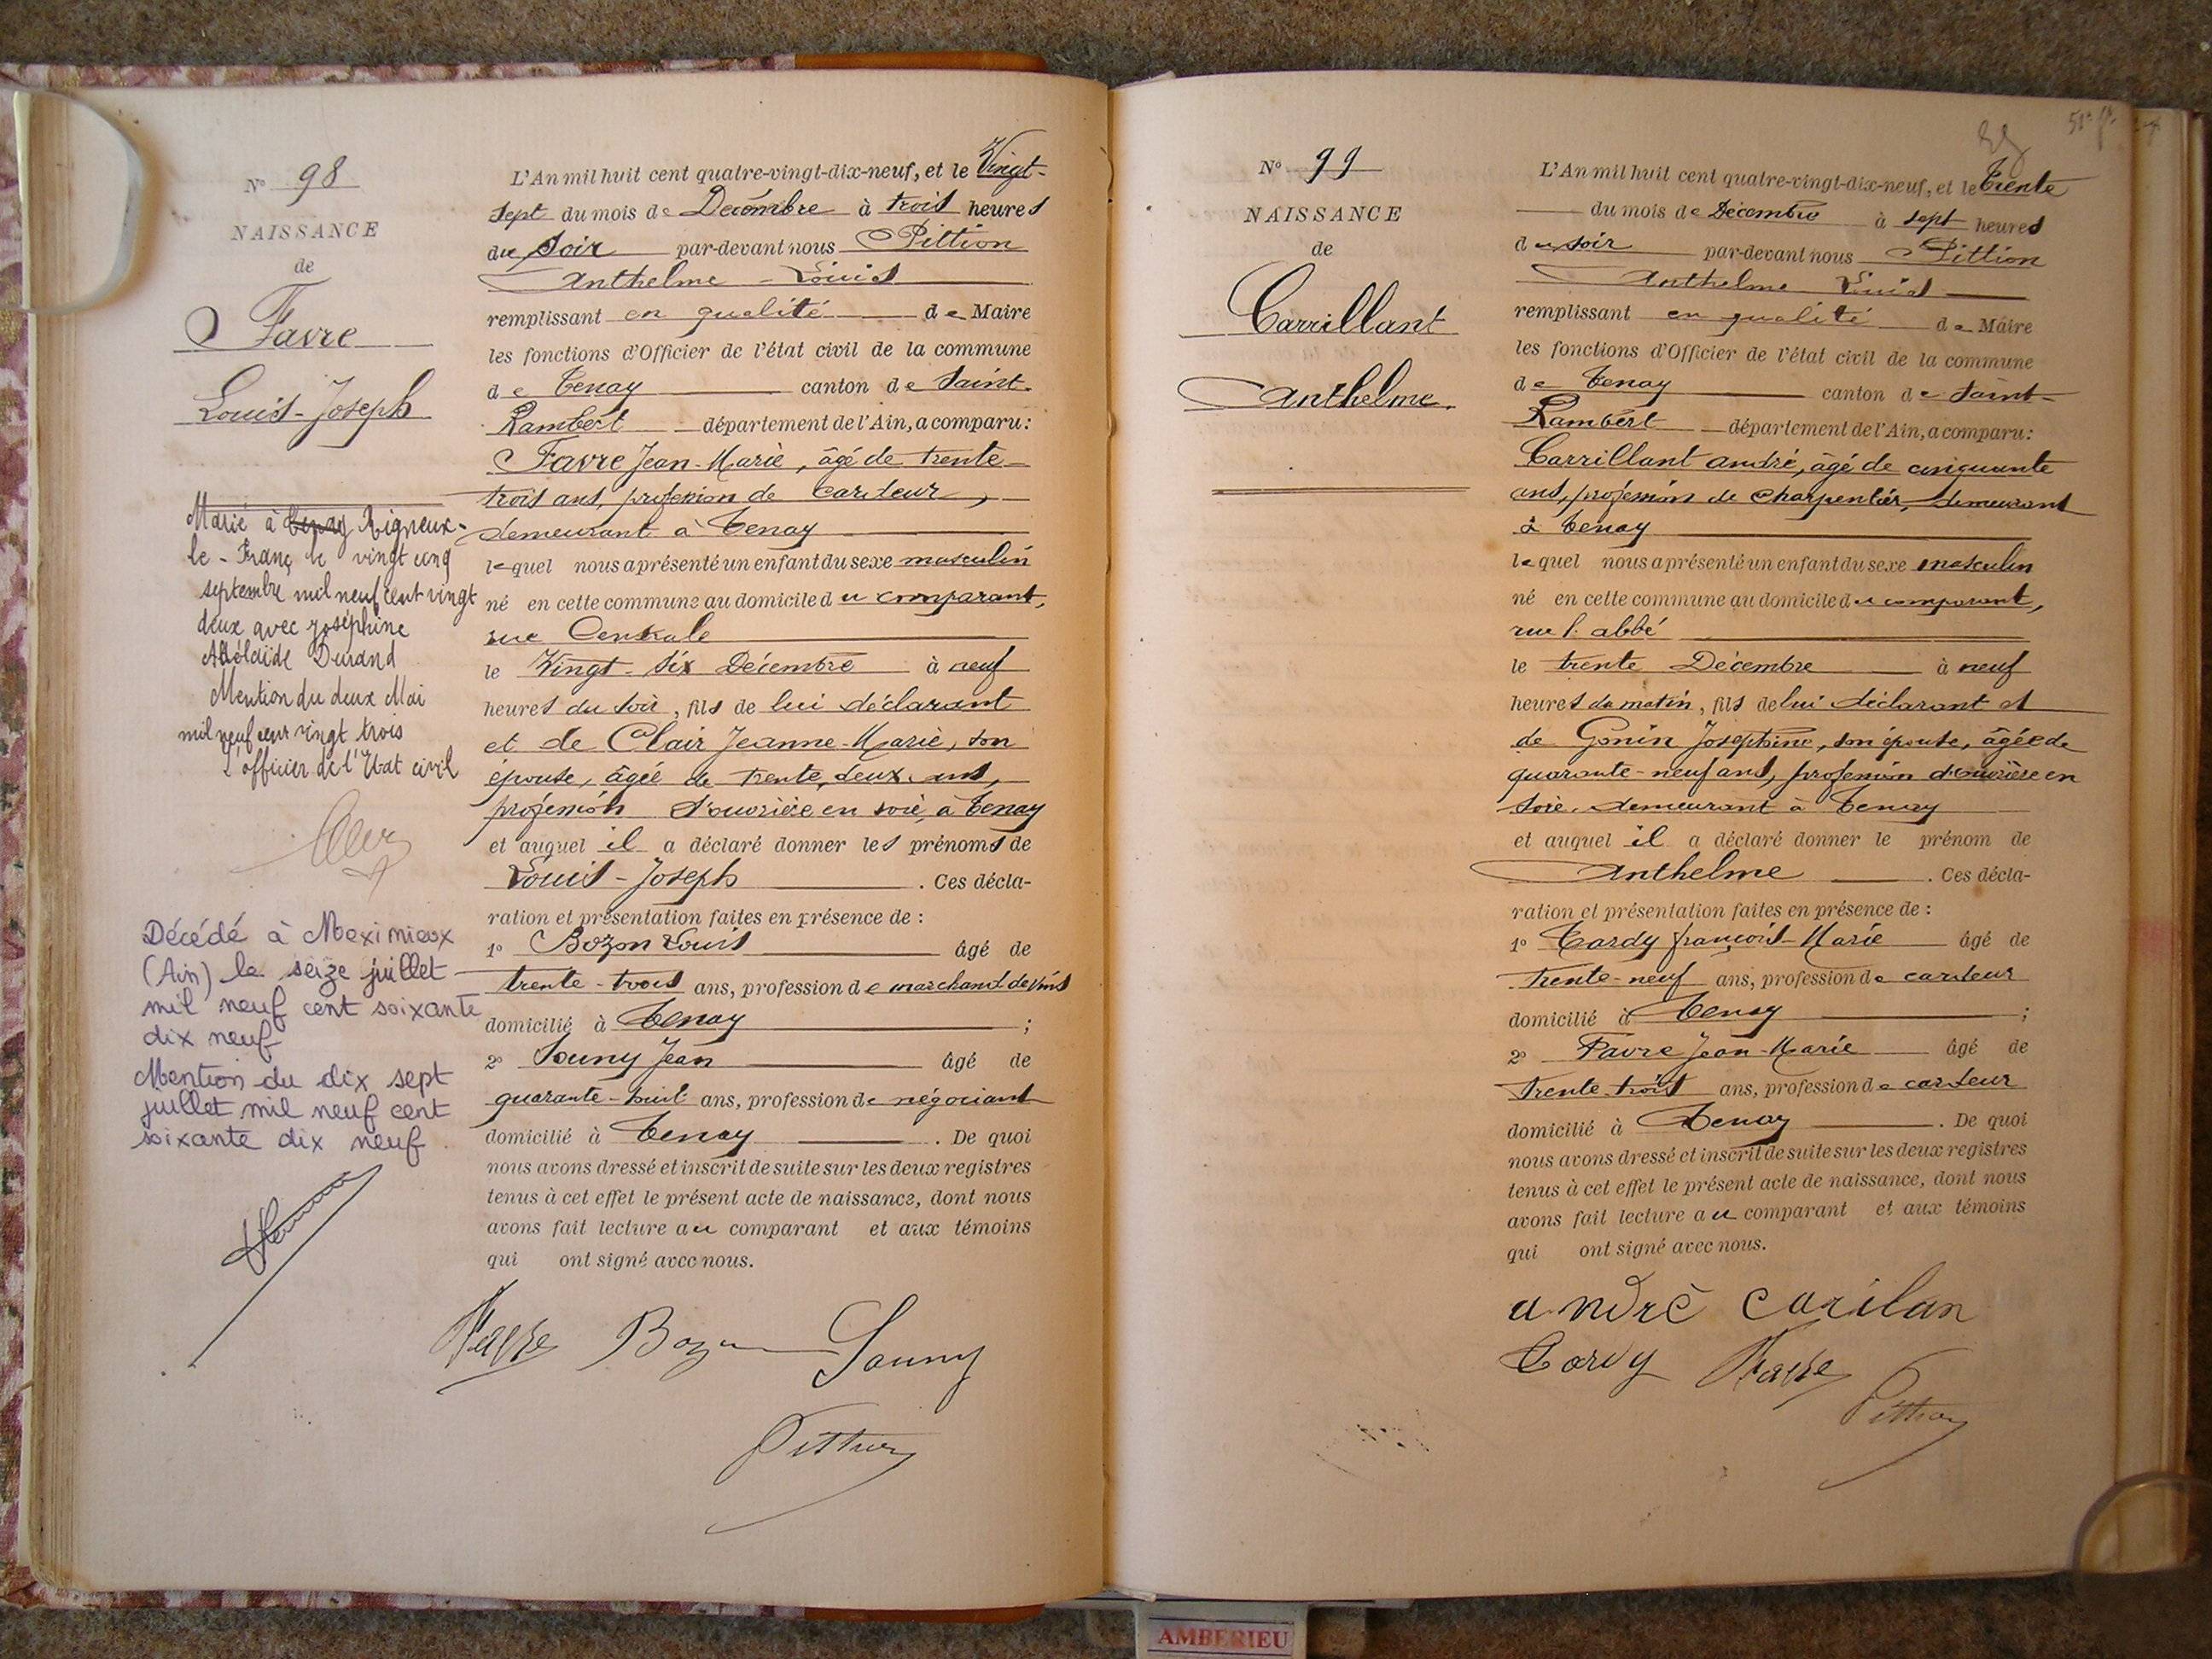 N° 98
NAISSANCE
de
Favre
Louis-Joseph
Marié à Tenay Rigneux-
le-Franc le vingt cinq
septembre mil neuf cent vingt
deux avec Joséphine
Adélaïde Durand
Mention du deux Mai
mil neuf cent vingt trois
L'officier de l'Etat civil
Décédé à Meximieux
(Ain) le seize juillet
mil neuf cent soixante
dix neuf
Mention du dix sept
juillet mil neuf cent
soixante dix neuf.
L'An mil huit cent quatre-vingt-dix-neuf, et le Vingt-
sept du mois de Décembre à trois heures
du soir par-devant nous Pittion
Anthelme-Louis
remplissant en qualité de Maire
les fonctions d'Officier de l'état civil de la commune
de Tenay canton de Saint-
Rambert département de l'Ain, a comparu:
Favre Jean-Marie, âgé de trente-
trois ans, profession de cardeur,
demeurant à Tenay
lequel nous a présenté un enfant du sexe masculin
né en cette commune au domicile du comparant,
rue Centrale
le Vingt-six Décembre à neuf
heures du soir, fils de lui déclarant
et de Clair Jeanne-Marie, son
épouse, âgée de trente deux ans,
profession d'ouvrière en soie, à Tenay
et auquel il a déclaré donner les prénoms de
Louis-Joseph. Ces décla-
ration et présentation faites en présence de :
1° Bozon Louis âgé de
trente-trois ans, profession de marchand de vins
domicilié à Tenay ;
2° Souny Jean âgé de
quarante-huit ans, profession de négociant
domicilié à Tenay. De quoi
nous avons dressé et inscrit de suite sur les deux registres
tenus à cet effet le présent acte de naissance, dont nous
avons fait lecture au comparant et aux témoins
qui ont signé avec nous.
Favre Bozon Souny
Pittion
N° 99
NAISSANCE
de
Carrillant
Anthelme.
L'An mil huit cent quatre-vingt-dix-neuf, et le Trente
du mois de Décembre à sept heures
du soir par-devant nous Pittion
Anthelme Louis
remplissant en qualité de Maire
les fonctions d'Officier de l'état civil de la commune
de Tenay canton de Saint-
Rambert département de l'Ain, a comparu:
Carrillant André, âgé de cinquante
ans, profession de charpentier, demeurant
à Tenay
lequel nous a présenté un enfant du sexe masculin
né en cette commune au domicile du comparant,
rue l'abbé
le trente Décembre à neuf
heures du matin, fils de lui déclarant et
de Gonin Josephine, son épouse, âgée de
quarante-neuf ans, profession d'ouvrière en
soie, demeurant à Tenay
et auquel il a déclaré donner le prénom de
Anthelme. Ces décla-
ration et présentation faites en présence de :
1° Tardy françois-Marie âgé de
trente-neuf ans, profession de cardeur
domicilié à Tenay ;
2° Favre Jean-Marie âgé de
trente-trois ans, profession de cardeur
domicilié à Tenay. De quoi
nous avons dressé et inscrit de suite sur les deux registres
tenus à cet effet le présent acte de naissance, dont nous
avons fait lecture au comparant et aux témoins
qui ont signé avec nous.
andré carilan
Tardy Favre
Pittion
AMBERIEU